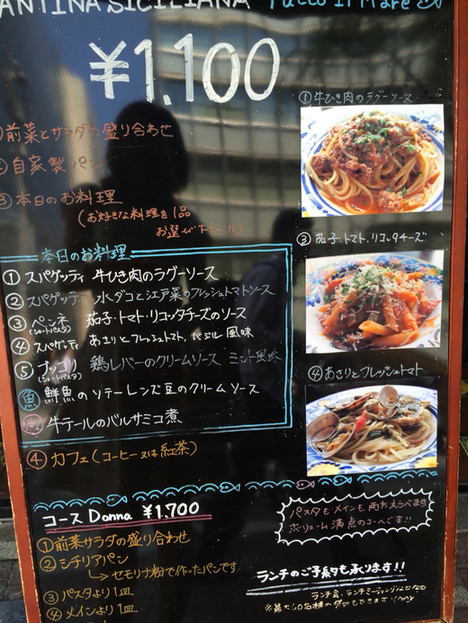 ANTINA SICILIANA Tutto il Mare
¥1,100
①牛ひき肉のラグーソース
前菜とサラダの盛り合わせ
② 自家製パン
③ 本日のお料理
(お好きな料理を1品
お選び下さい!
本日のお料理
① スパゲッティ 牛ひき肉のラグーソース
② スパゲッティ 水ダコと江戸菜のフレッシュトマトソース
③ ペンネ 茄子・トマト・リコッタチーズのソース
(ショートパスタ)
④ スパゲッティ あさりとフレッシュトマト、バジル風味
⑤ ブッコリ 鶏レバーのクリームソース ミント風味
(ショートパスタ)
魚 鮮魚のソテー レンズ豆のクリームソース
肉 牛テールのバルサミコ煮
④ カフェ(コーヒー又は紅茶)
③ 茄子、トマト、リコッタチーズ
④あさりとフレッシュトマト
コース Donna ¥1,700
①前菜サラダの盛り合わせ
②シチリアパン
セモリナ粉で作ったパンです
③パスタより1皿
④メインより1皿
パスタもメインも両方えらべます
ボリューム満点のコースです!!
ランチのご予約も承ります!!
ランチ会・ランチミーティング